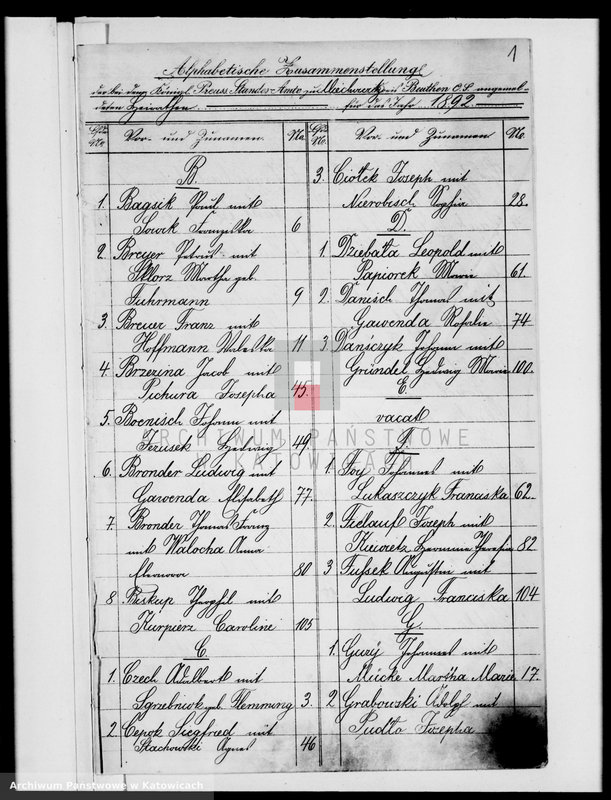 1
Alphabetische Zusammenstellung
der bei dem Königl. Preuss. Standes-Amte zu Miechowitz bei Beuthen O.S. angemel-
deten Heirathen für das Jahr 1892.
Vor- und Zunamen. No.
B.
1. Bagsik Paul mit
Sowik Franziska 6
2. Breuer Petrus mit
Sklorz Martha geb.
Fuhrmann 9
3. Breuer Franz mit
Hoffmann Valeska 11
4. Brzezina Jacob mit
Pichura Josepha 45.
5. Boenisch Johann mit
Jezusek Hedwig 49.
6. Bronder Ludwig mit
Gawenda Elisabeth 77.
7. Bronder Thomas Franz
mit Walocha Anna
Eleonora 80
8 Biskup Theophil mit
Kurpierz Caroline 105
C.
1. Czech Adalbert mit
Sgrzebniok geb. Flemming 3.
2 Cepok Siegfried mit
Stachowski Agnes 46
No. Vor- und Zunamen No.
3. Ciołek Joseph mit
Nierobisch Sophie 28.
D.
1. Dziebałła Leopold mit
Papiorek Marie 61.
2. Danisch Thomas mit
Gawenda Rosalie 74
3 Dańczyk Johann mit
Gründel Hedwig Marie 100.
E.
vacat
F.
1. Foy Johannes mit
Lukaszczyk Franciska 62.
2. Fiellauf Joseph mit
Hermine Theresia 82.
3 Fussek Augustin mit
Ludwig Franciska 104
G.
1. Gury Johannes mit
Mücke Martha Marie 17.
2 Grabowski Adolf mit
Pudło Josepha
ARCHIWUM PAŃSTWOWE
W KATOWICACH
Archiwum Państwowe w Katowicach